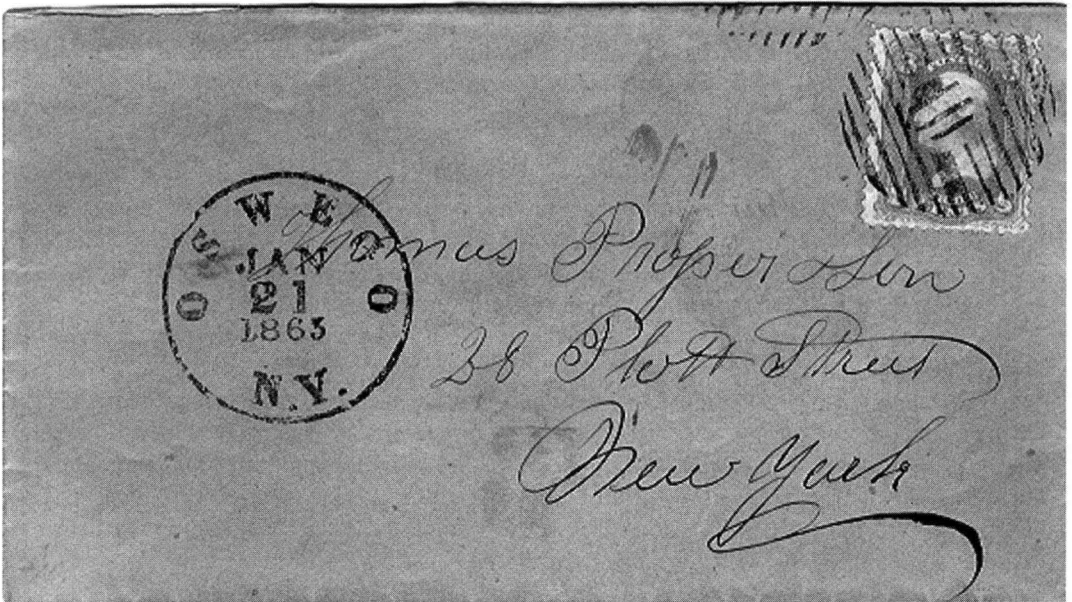 OSWEGO
JAN
21
1863
N.Y.
Thomas Proper & Son
28 Platt Street
New York